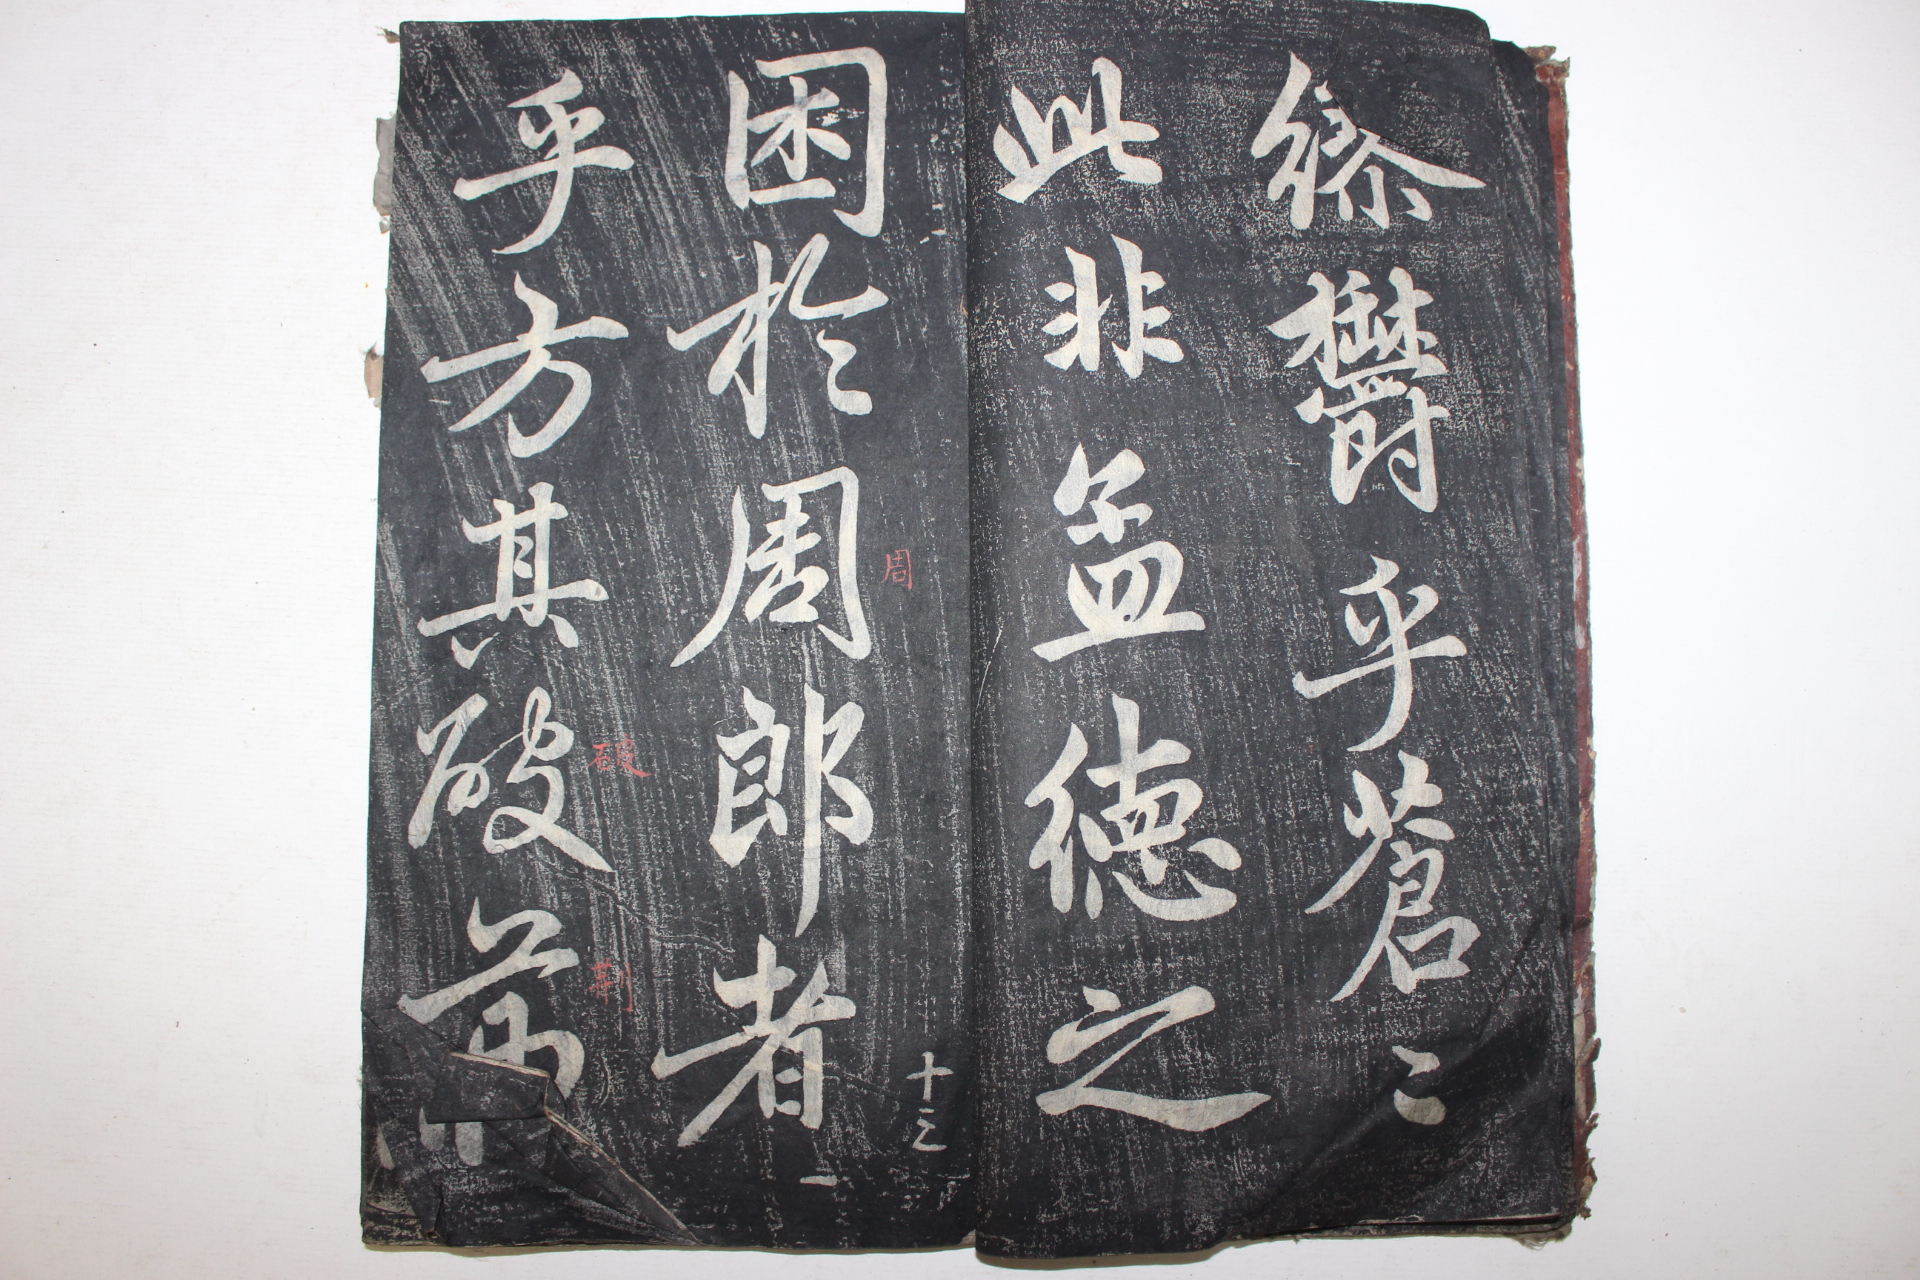 繆鬱乎蒼〻
此非孟德之
困於周郎者
周
十三
一
乎方其破荊
破
荊